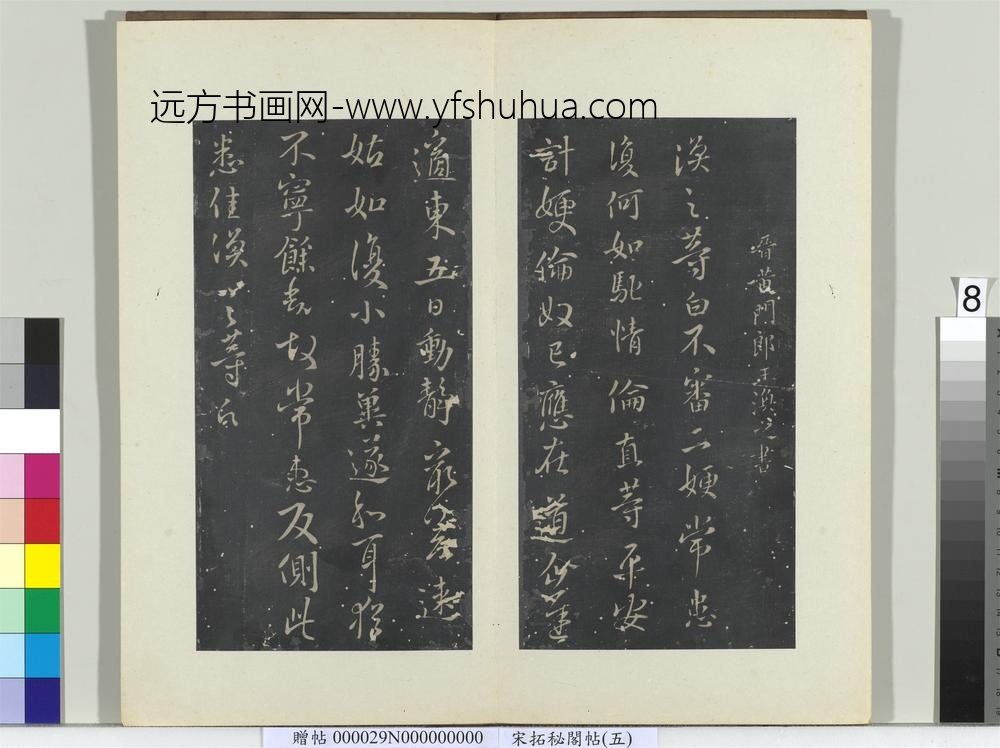 远方书画网-www.yfshuhua.com
晉黃門郎王渙之書
渙之等白不審二嫂常患
復何如馳情倫直等平安
計嫂倫奴已應在道企
適東五日動靜寥遠
姑如復小勝冀遂和耳猶
不寧餘悉故常患反側此
悉佳渙之等白
8
贈帖 000029N000000000 宋拓秘閣帖(五)